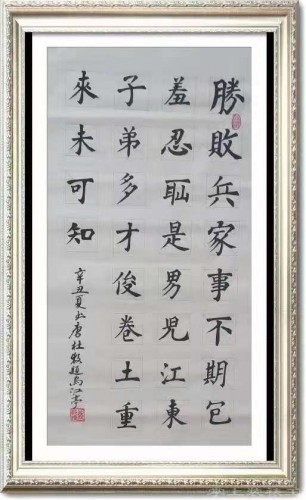 勝敗兵家事不期包
羞忍恥是男児江東
子弟多才俊卷土重
來未可知
辛丑夏書唐杜牧題烏江亭